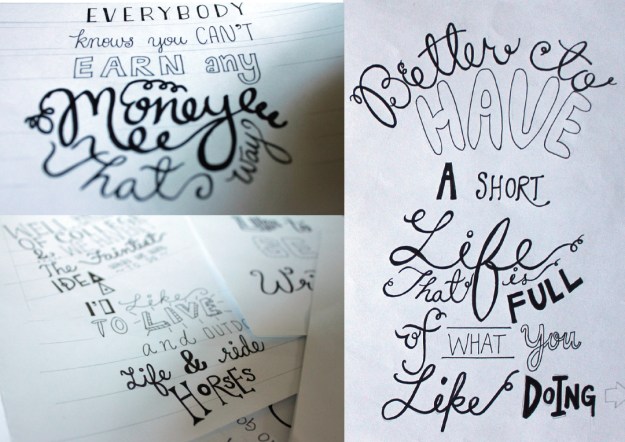 EVERYBODY
knows you CAN'T
EARN any
Money
That Way
OF COLLEGE
& The Faintest
IDEA
I'D Like
TO LIVE
and OUTD
Life & ride
HORSES
Wri
Better to
HAVE
A SHORT
Life
That is FULL
of WHAT You
Like DOING